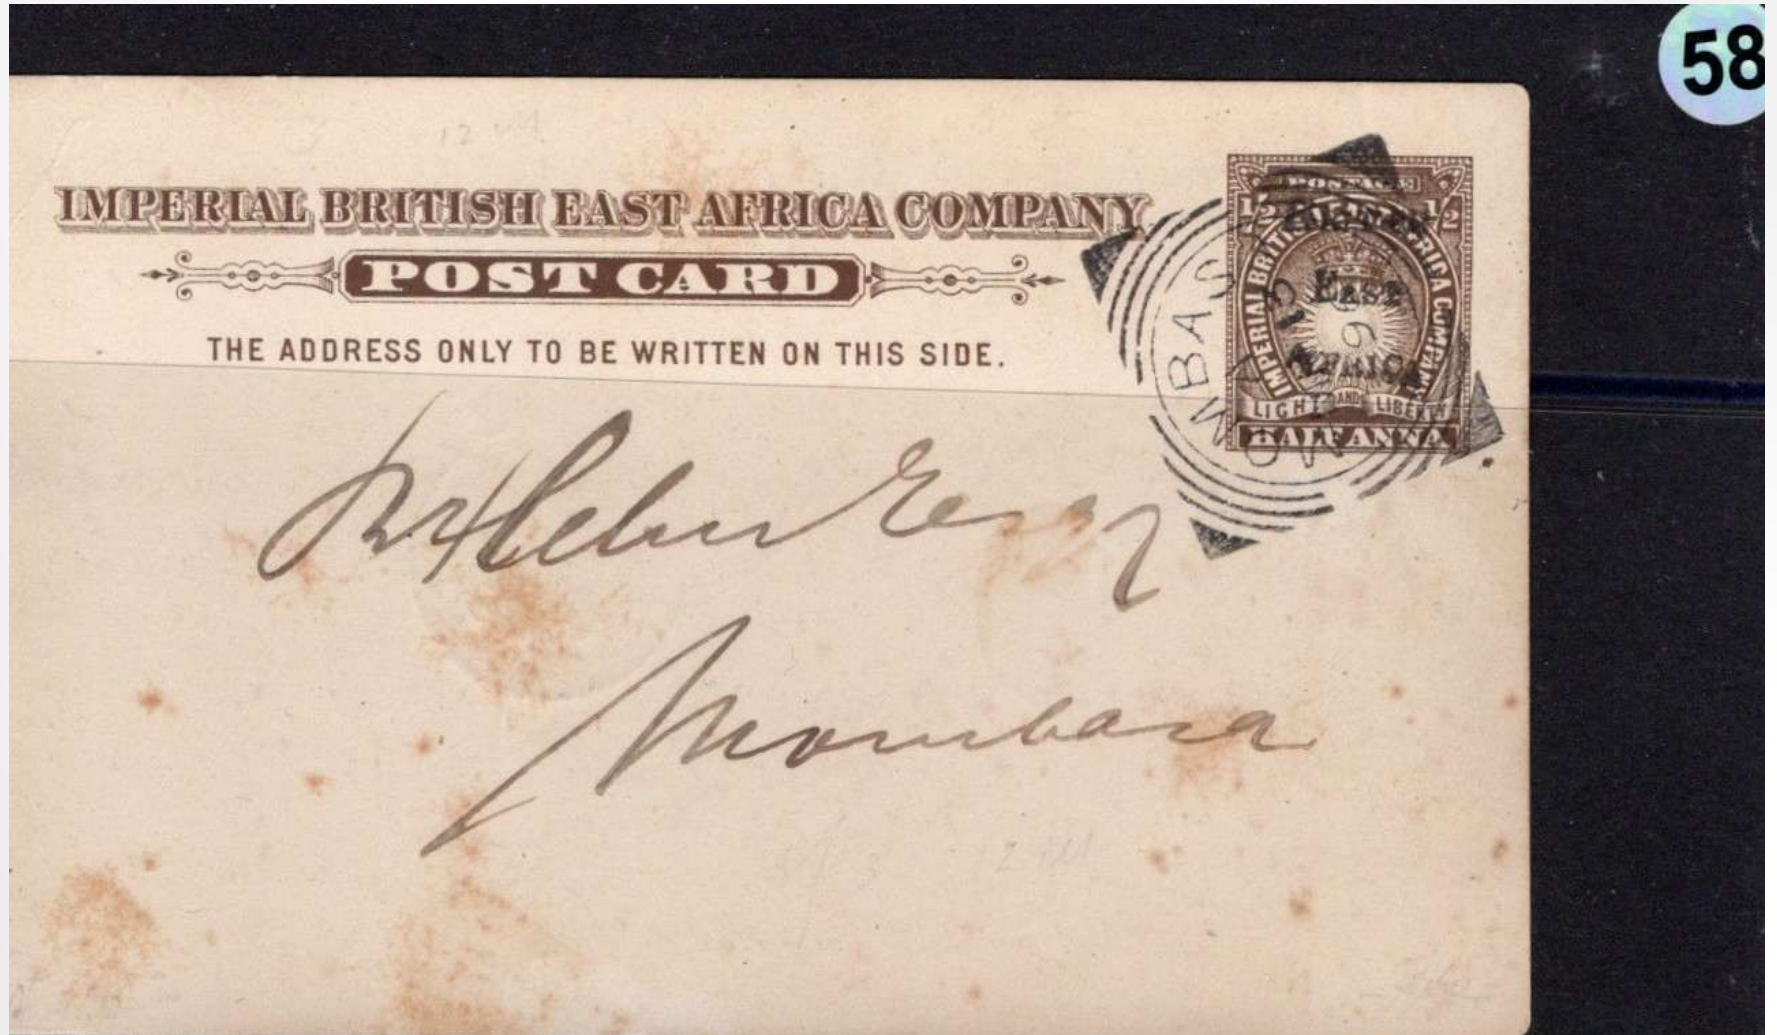 58
IMPERIAL BRITISH EAST AFRICA COMPANY
POST CARD
THE ADDRESS ONLY TO BE WRITTEN ON THIS SIDE.
POSTAGE
1/2 1/2
IMPERIAL BRITISH EAST AFRICA COMPANY
BRITISH
EAST
AFRICA
LIGHT AND LIBERTY
HALF ANNA
MOMBASA
96
Esqr
Mombasa